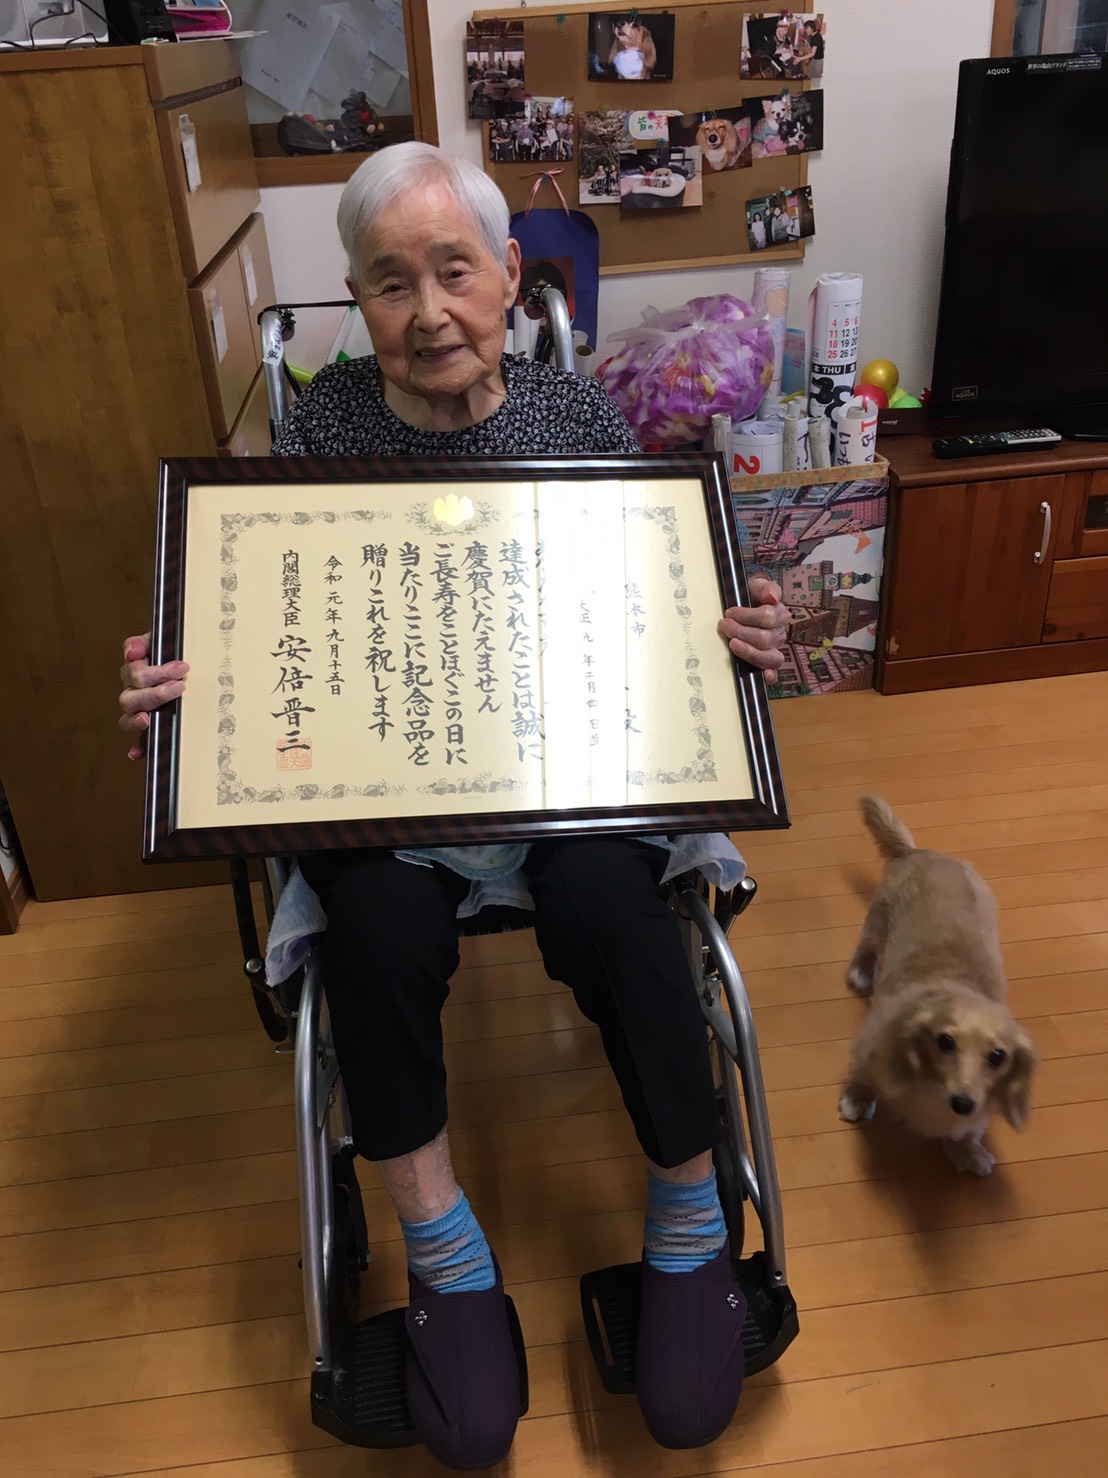 熊本市
殿
大正九年二月
達成されたことは誠に
慶賀にたえません
ご長寿をことほぐこの日に
当たりここに記念品を
贈りこれを祝します
令和元年九月十五日
内閣総理大臣 安倍晋三
AQUOS
AQUOS
4 5 6
11 12 13
18 19 20
25 26 27
THU
2